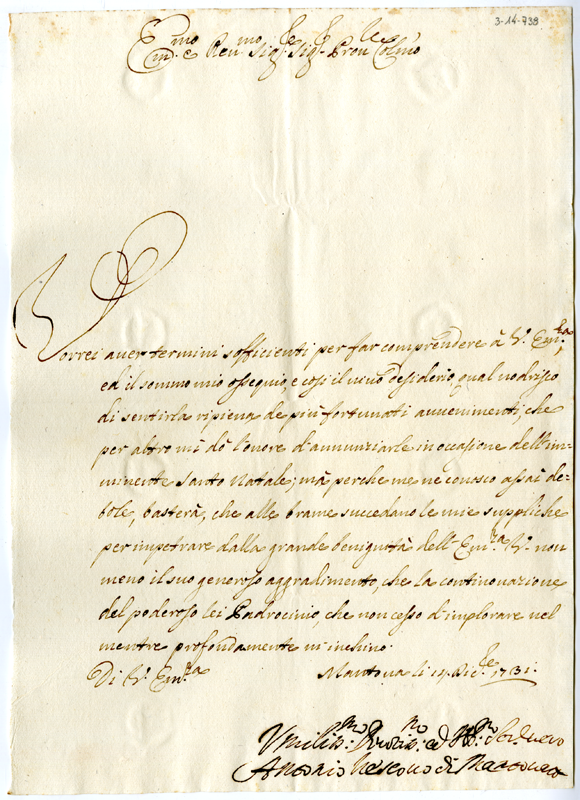 3-14-738
Em.mo e Reu.mo Sig.r Sig.r Pron.e Colmo
Vorrei auer termini sofficienti per far comprendere à V.a Em.za,
ed il sommo mio ossequio, e così il viuo desiderio, qual nodrisco
di sentirla ripiena de più fortunati auuenimenti, che
per altro mi dò l'onore d'annunziarle in occasione dell'im-
minente Santo Natale; mà perche me ne conosco assai de-
bole, basterà, che alle brame succedano le mie suppliche
per impetrare dalla grande benignità dell'Em.za V.a non
meno il suo generoso aggradimento, che la continouazione
del poderoso lei Padrocinio, che non cesso d'implorare nel
mentre profondamente m'inchino.
Di V.a Em.za
Mantoua li 14 Dic.e 1731.
Vmiliss.mo Deuotiss.mo ed Obb.mo Ser.e uero
Antonio Vescouo di Mantoua